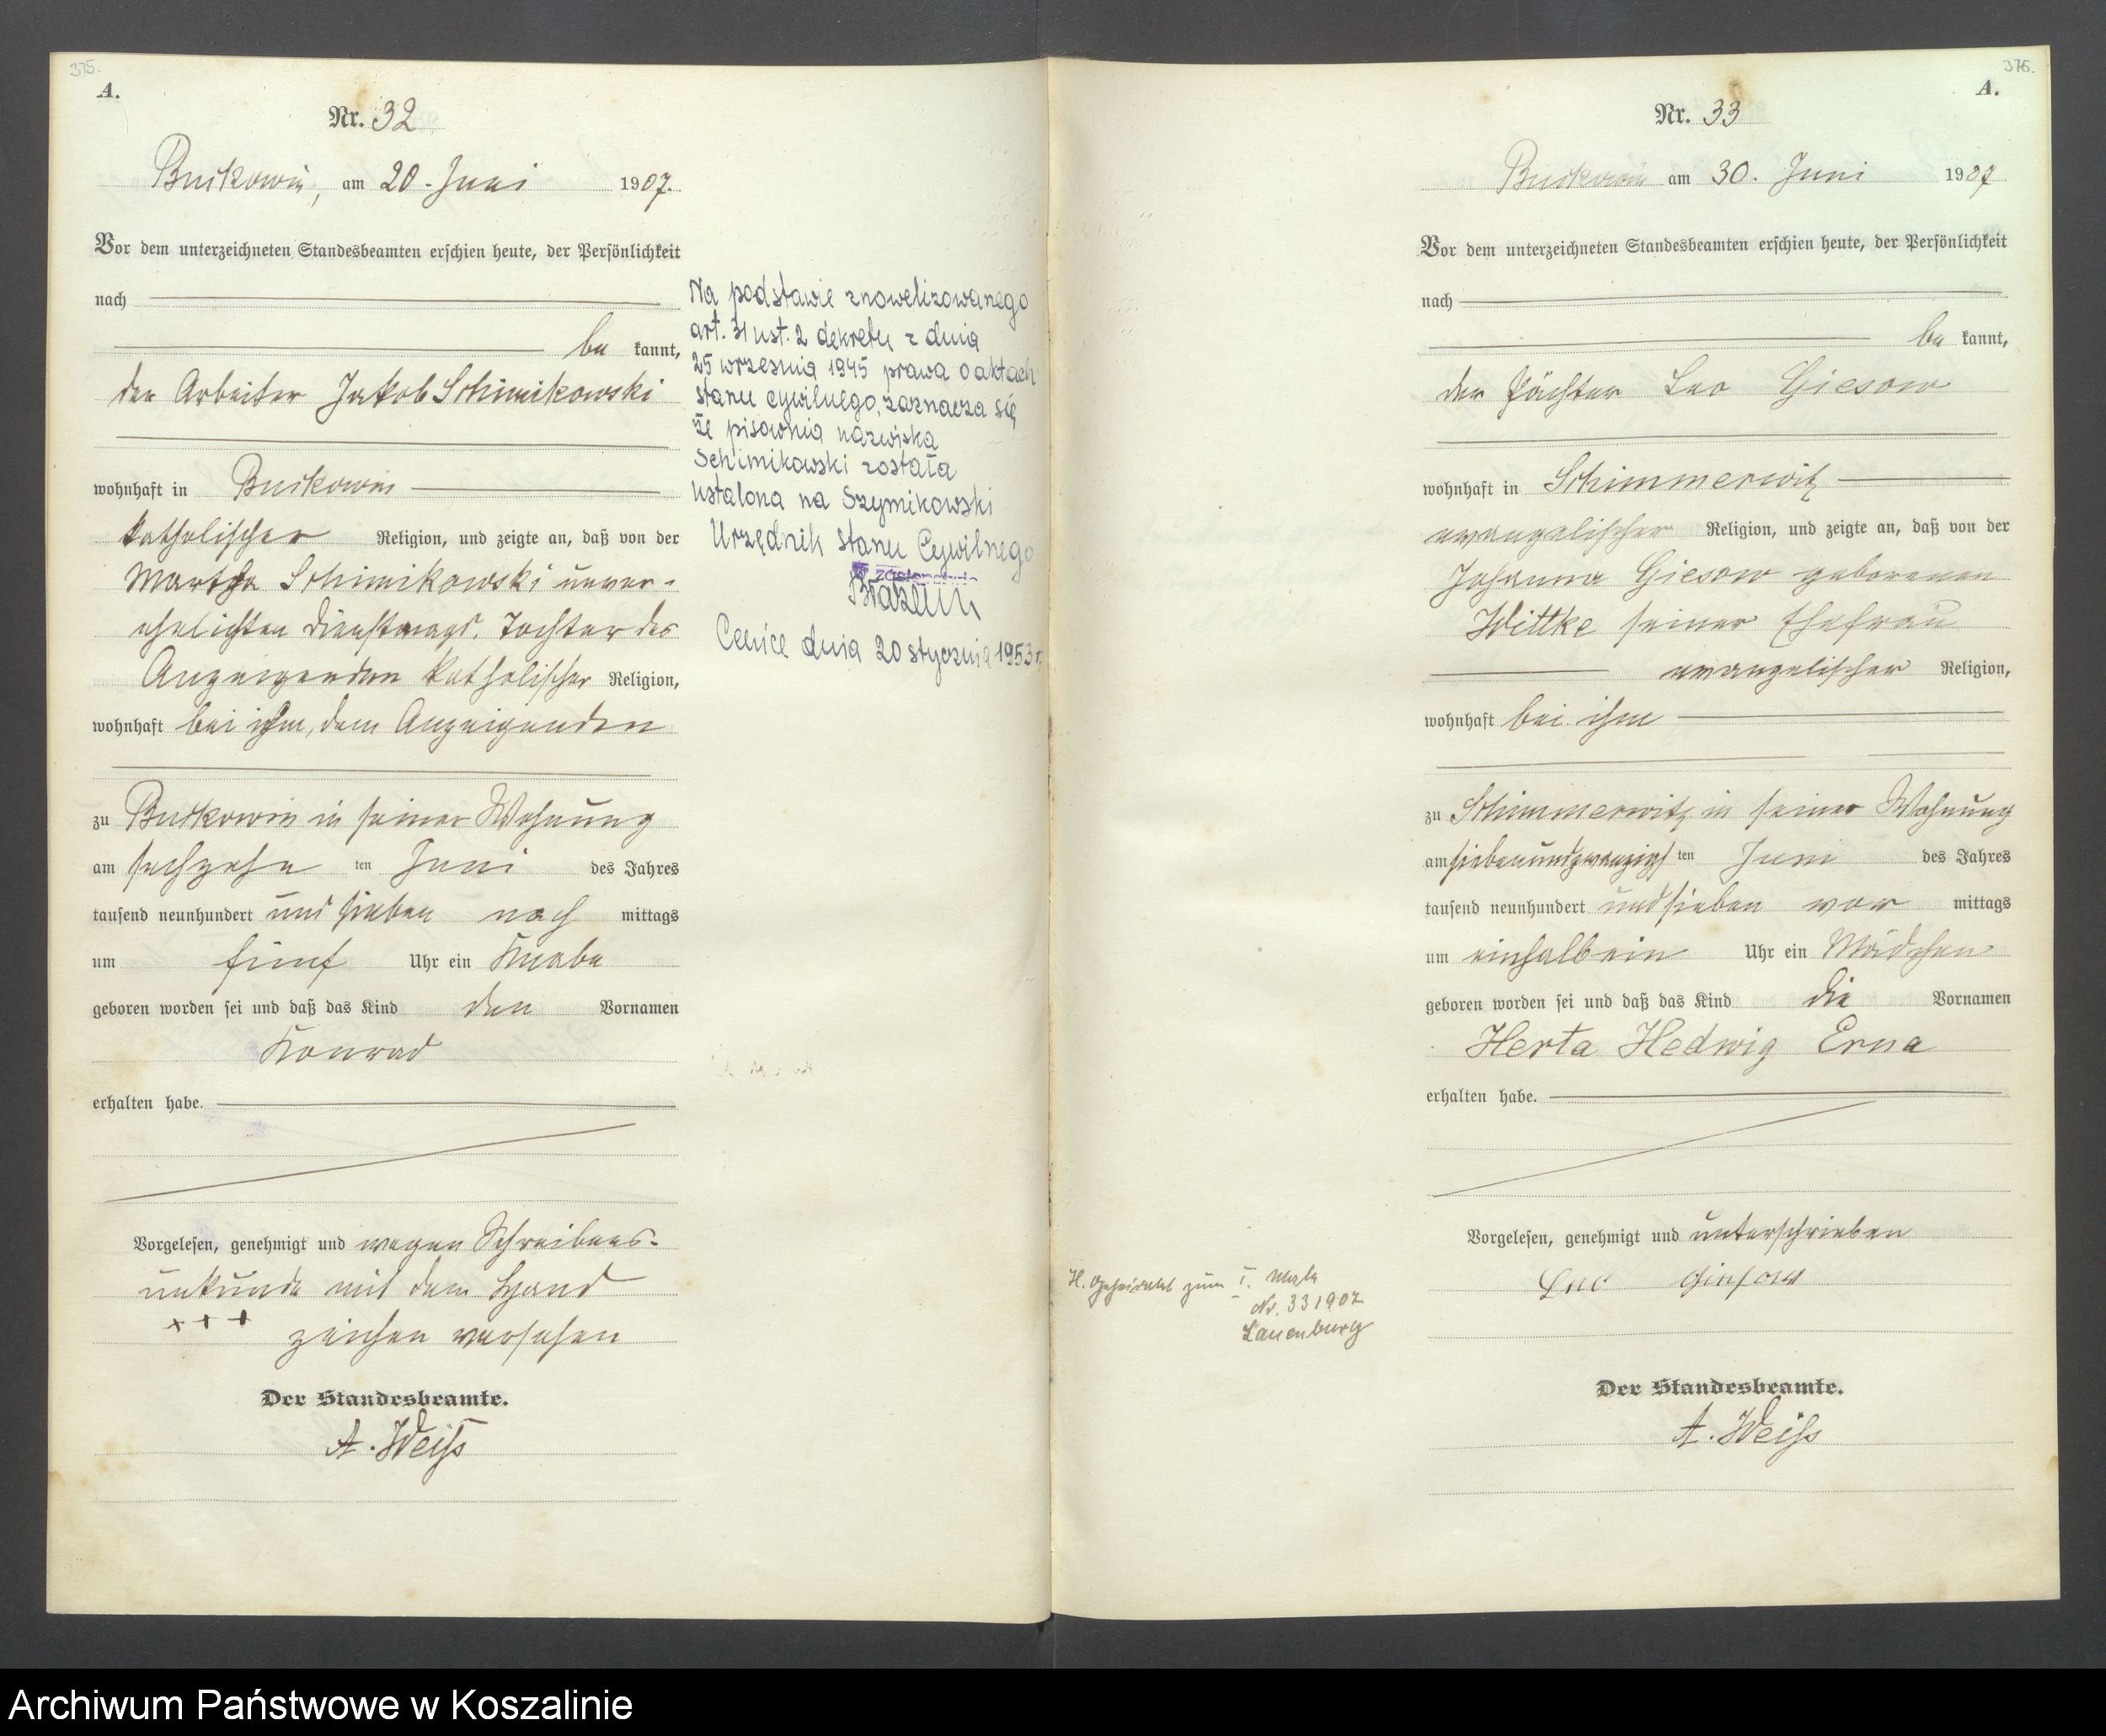 375.
A.
Nr. 32
Buckowin, am 20. Juni 1907.
Vor dem unterzeichneten Standesbeamten erschien heute, der Persönlichkeit
nach
be kannt,
der Arbeiter Jakob Schimikowski
wohnhaft in Buckowin
katholischer Religion, und zeigte an, daß von der
Martha Schimikowski unver-
ehelichten Dienstmagd, Tochter des
Anzeigenden katholischer Religion,
wohnhaft bei ihm, dem Anzeigenden
zu Buckowin in seiner Wohnung
am sechzehn ten Juni des Jahres
tausend neunhundert und sieben nach mittags
um fünf Uhr ein Knabe
geboren worden sei und daß das Kind den Vornamen
Konrad
erhalten habe.
Vorgelesen, genehmigt und wegen Schreibens-
unkunde mit dem Hand
+++ zeichen versehen
Der Standesbeamte.
A. Weiß
Na podstawie znowelizowanego
art. 31 ust. 2 dekretu z dnia
25 września 1945 prawa o aktach
stanu cywilnego, zaznacza się
że pisownia nazwiska
Schimikowski została
ustalona na Szymikowski
Urzędnik Stanu Cywilnego
Cewice dnia 20 stycznia 1953 r.
376.
A.
Nr. 33
Buckowin am 30. Juni 1907
Vor dem unterzeichneten Standesbeamten erschien heute, der Persönlichkeit
nach
be kannt,
der Pächter Leo Giesow
wohnhaft in Schimmerwitz
evangelischer Religion, und zeigte an, daß von der
Johanna Giesow geborenen
Wittke seiner Ehefrau
evangelischer Religion,
wohnhaft bei ihm
zu Schimmerwitz in seiner Wohnung
am siebenundzwanzigs ten Juni des Jahres
tausend neunhundert und sieben vor mittags
um einhalb ein Uhr ein Mädchen
geboren worden sei und daß das Kind die Vornamen
Herta Hedwig Erna
erhalten habe.
Vorgelesen, genehmigt und unterschrieben
Leo Giesow
Der Standesbeamte.
A. Weiß
H. Geheiratet zum I. Male
Nr. 33 1907
Lauenburg
Archiwum Państwowe w Koszalinie